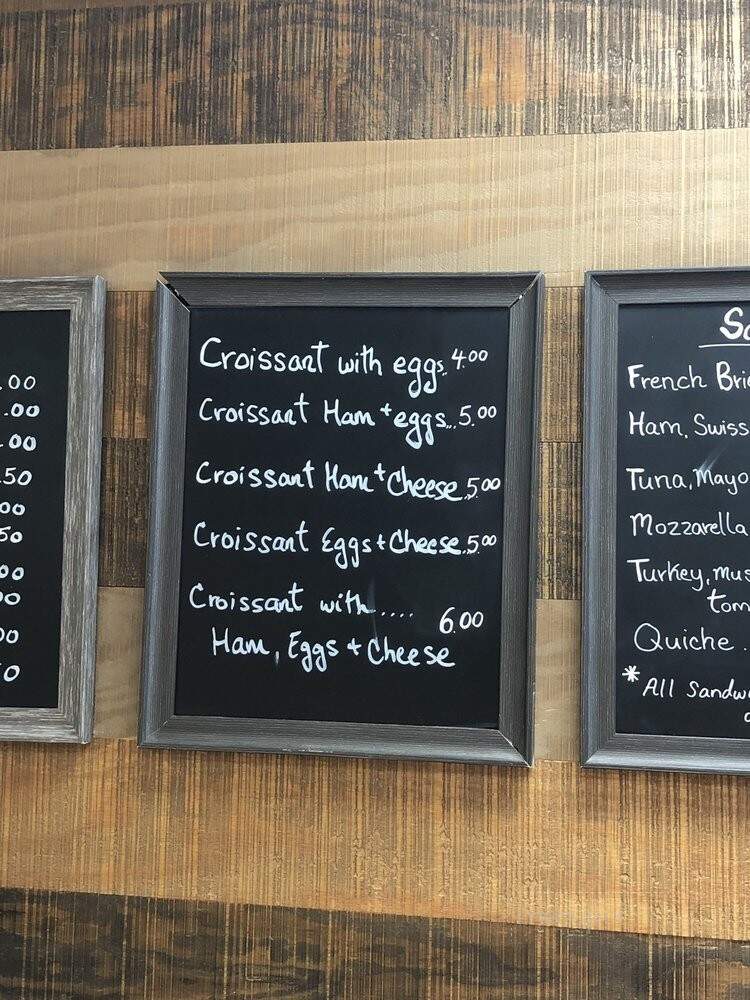 .00
.00
.00
.50
.00
50
00
00
00
0
Croissant with eggs..4.00
Croissant Ham + eggs...5.00
Croissant Ham + Cheese.5.00
Croissant Eggs + Cheese.5.00
Croissant with.... 6.00
Ham, Eggs + Cheese
French
Ham, Swiss
Tuna, Mayo
Mozzarella
Turkey,
Quiche.
* All